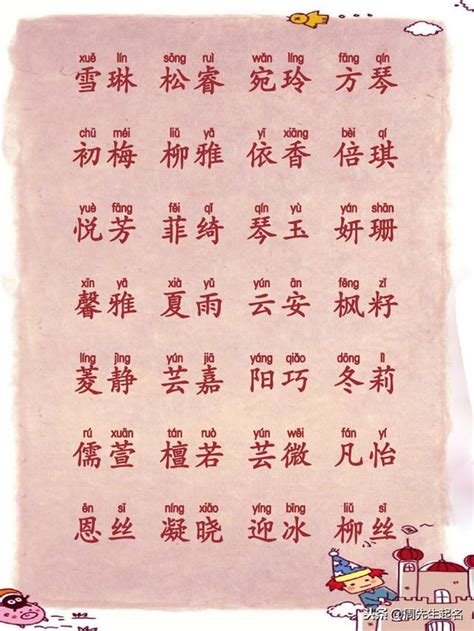 xuě lín sōng ruì wǎn líng fāng qín
雪琳 松睿 宛玲 方琴
chū méi liǔ yǎ yī xiāng bèi qí
初梅 柳雅 依香 倍琪
yuè fāng fěi qǐ qín yù yán shān
悦芳 菲绮 琴玉 妍珊
xīn yǎ xià yǔ yún ān fēng zǐ
馨雅 夏雨 云安 枫籽
líng jìng yún jiā yáng qiǎo dōng lì
菱静 芸嘉 阳巧 冬莉
rú xuān tán ruò yún wēi fán yí
儒萱 檀若 芸微 凡怡
ēn sī níng xiǎo yíng bīng liǔ sī
恩丝 凝晓 迎冰 柳丝
头条 @周先生起名